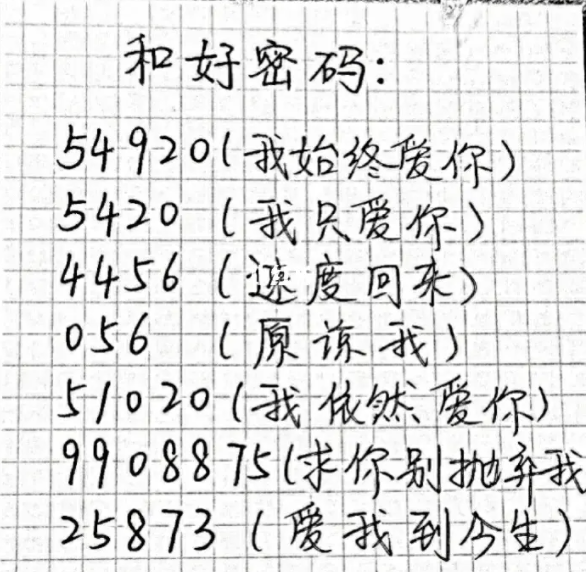 和好密码:
54920(我始终爱你)
5420 (我只爱你)
4456 (速度回来)
056 (原谅我)
51020(我依然爱你)
9908875(求你别抛弃我
25873 (爱我到今生)